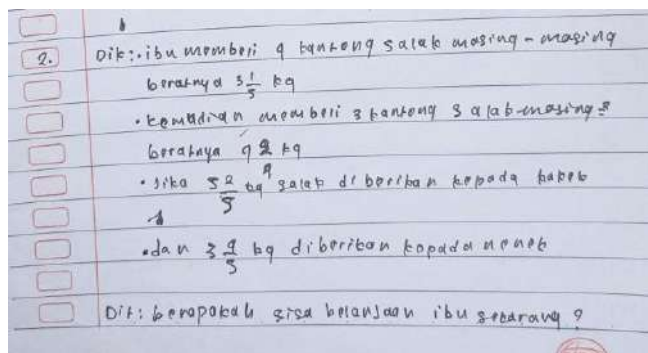 2. Dik: . ibu memberi 4 kantong salak masing - masing
beratnya 3 1/5 kg
. kemudian memberi 3 kantong salak masing-²
beratnya 4 2 kg
. Jika 5 2/5 kg salak diberikan kepada kakek
. dan 3 4/5 kg diberikan kepada nenek
Dit: berapakah sisa belanjaan ibu sekarang ?